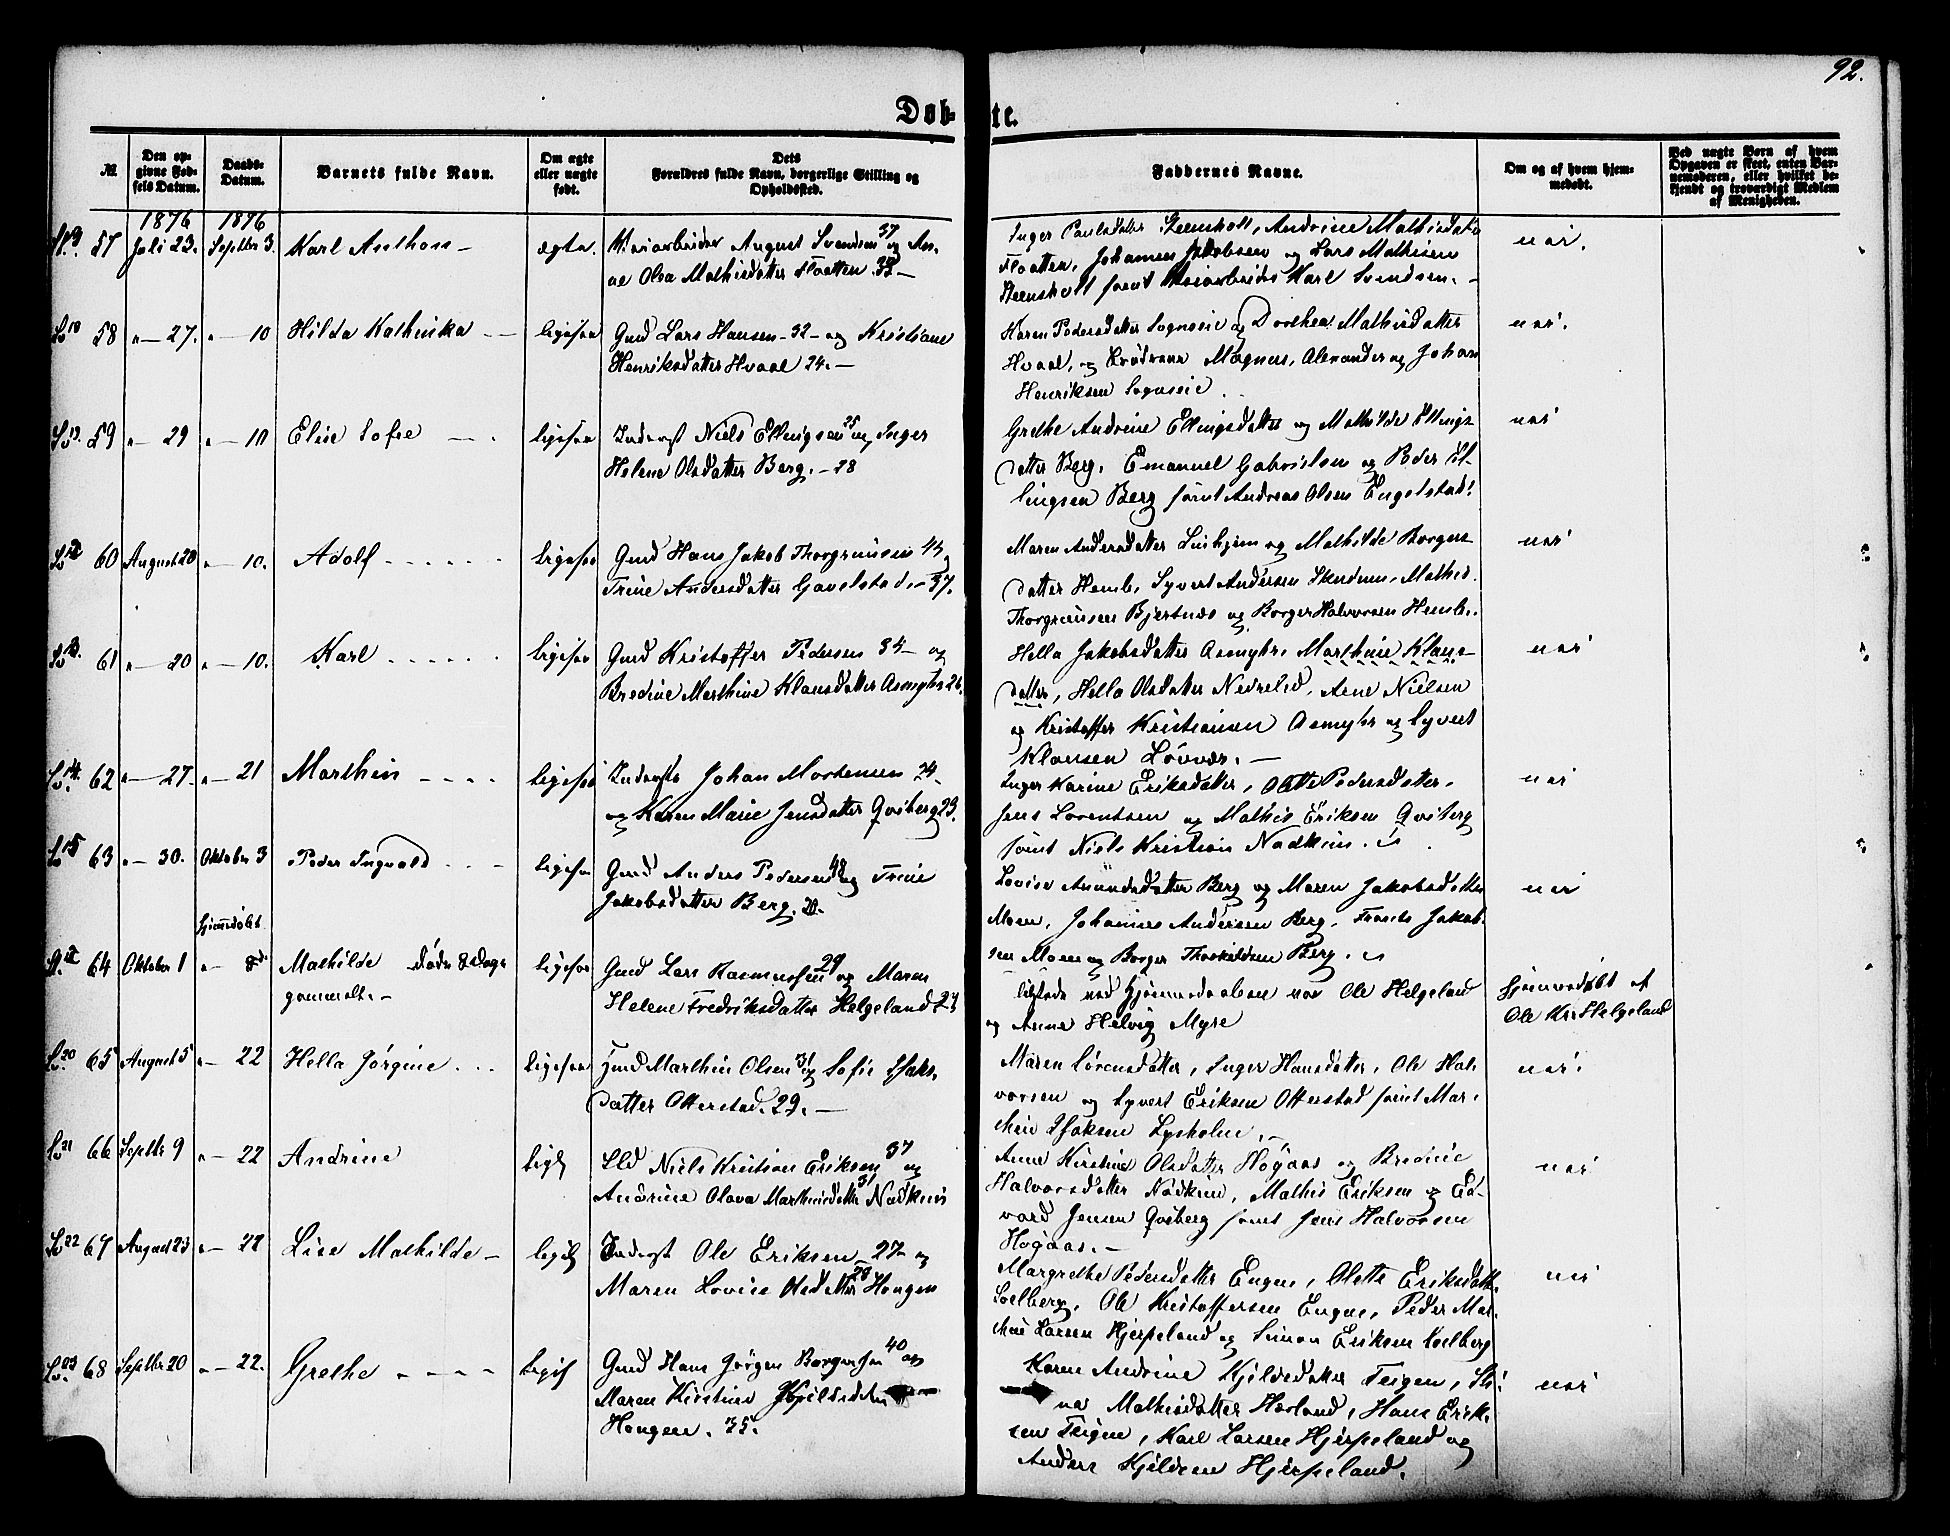 92.
Døb-te.
№
Den op-
givne Fød-
sels Datum.
Daabs-
Datum.
Barnets fulde Navn.
Om ægte
eller uægte
født.
Dets
Forældres fulde Navn, borgerlige Stilling og
Opholdssted.
Faddernes Navne.
Om og af hvem hjem-
medøbt.
Ved uægte Børn af hvem
Opgaven er skeet, enten Bar-
nemoderen, eller hvilket be-
kjendt og troværdigt Medlem
af Menigheden.
1876 1876
57 Juli 23. Septbr 3. Karl Anthon — ægte. August Svendsen 37 og An-
ne Olea Mathisdatter Floatten. —
Inger Paulsdatter Steensholt, Andrine Mathisdatter
Floatten, Johannes Jakobsen og Lars Mathisen
Steensholt samt Karl Svendsen. —
nei.
58 " — 27. " — 10 Hilda Kathinka — ligesaa Gmd Lars Hansen — 32 — og Kristiane
Henriksdatter Hvaal 24. —
Karen Pedersdatter og Dorthea Mathisdatter
Hvaal, og Magnus, Alexander og Johan
Henriksen
nei.
59 " — 29 " — 10 Elise Sofie — ligesaa Inderst Niels Ellingsen 25 og Inger
Helene Olsdatter Berg. — 28
Grethe Andrine Ellingsdatter og Mathilde Ellings
datter Berg. Emanuel Gabrielsen og Peder El-
lingsen Berg samt Andreas Olsen Engelstad.
nei
60 August 20 " — 10. Adolf ligesaa Gmd Hans Jakob Thorgrimsen 43
Trine Andersdatter Gavelstad. — 37.
Maren Andersdatter Linhjem og Mathilde Borgers
datter Hemb, Syvert Andersen Skedsmo, Mathis
Thorgrimsen Bjertnæs og Borger Halvorsen Hemb.
nei
61 " — 20 " — 10. Karl ligesaa Gmd Kristoffer Pedersen 34 — og
Bredine Marthine Klausdatter Asmyhr 26.
Hella Jakobsdatter Asmyhr, Marthine Klaus-
datter, Hella Olsdatter Nedrelid, Arne Nielsen
og Kristoffer Kristiansen Asmyhr og Syvert
Klausen Løvaas. —
nei
62 " — 27. " — 21 Marthin ligesaa Inderst Johan Mortensen 24
og Karen Marie Jensdatter Qviberg 23.
Inger Karine Eriksdatter, Olette Pedersdatter.
Jens Lorentsen og Mathis Eriksen Qviberg
samt Niels Kristian Nadkim.
nei
63 " — 30. Oktober 3 Peder Ingvald ligesaa Gmd Anders Pedersen 48 og Trine
Jakobsdatter Berg.
Lovise Amundsdatter Berg og Maren Jakobsdatter
Moen, Johannes Andersen Berg, Frants Jakob-
sen Moen og Borger Thorkildsen Berg.
nei
Hjemmedøbt
64 Oktober 1 " — 8de Mathilde døde 8 Dage
gammelt. —
ligesaa Gmd Lars Rasmussen 29 og Maren
Helene Fredriksdatter Helgeland 24
tilstede ved Hjemmedaaben var Ole Helgeland
og Anne Helvig Myre
Hjemmedøbt af
Ole Kr. Helgeland
65 August 5 " — 22 Hella Jørgine ligesaa Gmd Marthin Olsen 31 og Sofie Isaks-
datter Otterstad. 29. —
Maren Sørensdatter, Inger Hansdatter, Ole Hal-
vorsen og Syvert Eriksen Otterstad samt Mar-
thin Isaksen Lysholm. —
nei.
66 Septbr 9 " — 22 Andrine ligel. Niels Kristian Eriksen 37 og
Andrine Olava Marthinsdatter 31 Nadkim
Anne Kirstine Olsdatter Høgaas og Bredine
Halvorsdatter Nadkim, Mathis Eriksen og Ed-
vard Jensen Qviberg samt Jens Halvorsen
Høgaas. —
nei
67 August 23 " — 22 Lise Mathilde — ligel. Inderst Ole Eriksen — 27 — og
Maren Lovise Olsdatter 28 Hougen
Margrethe Pedersdatter Engne, Olette Eriksdatter
Solberg, Ole Kristoffersen Engne, Peder Mar-
thin Larsen Hjerpeland og Simon Eriksen Solberg
nei
68 Septbr 20 " — 22. Grethe ligel. Gmd Hans Jørgen Borgersen 40 og
Maren Kirstine Kjeldsdatter
Hougen. 35.
Karen Andrine Kjeldsdatter Teigen, Sti-
na Mathisdatter Hørland, Hans Erik-
sen Teigen, Karl Larsen Hjerpeland og
Anders Kjeldsen Hjerpeland.
nei